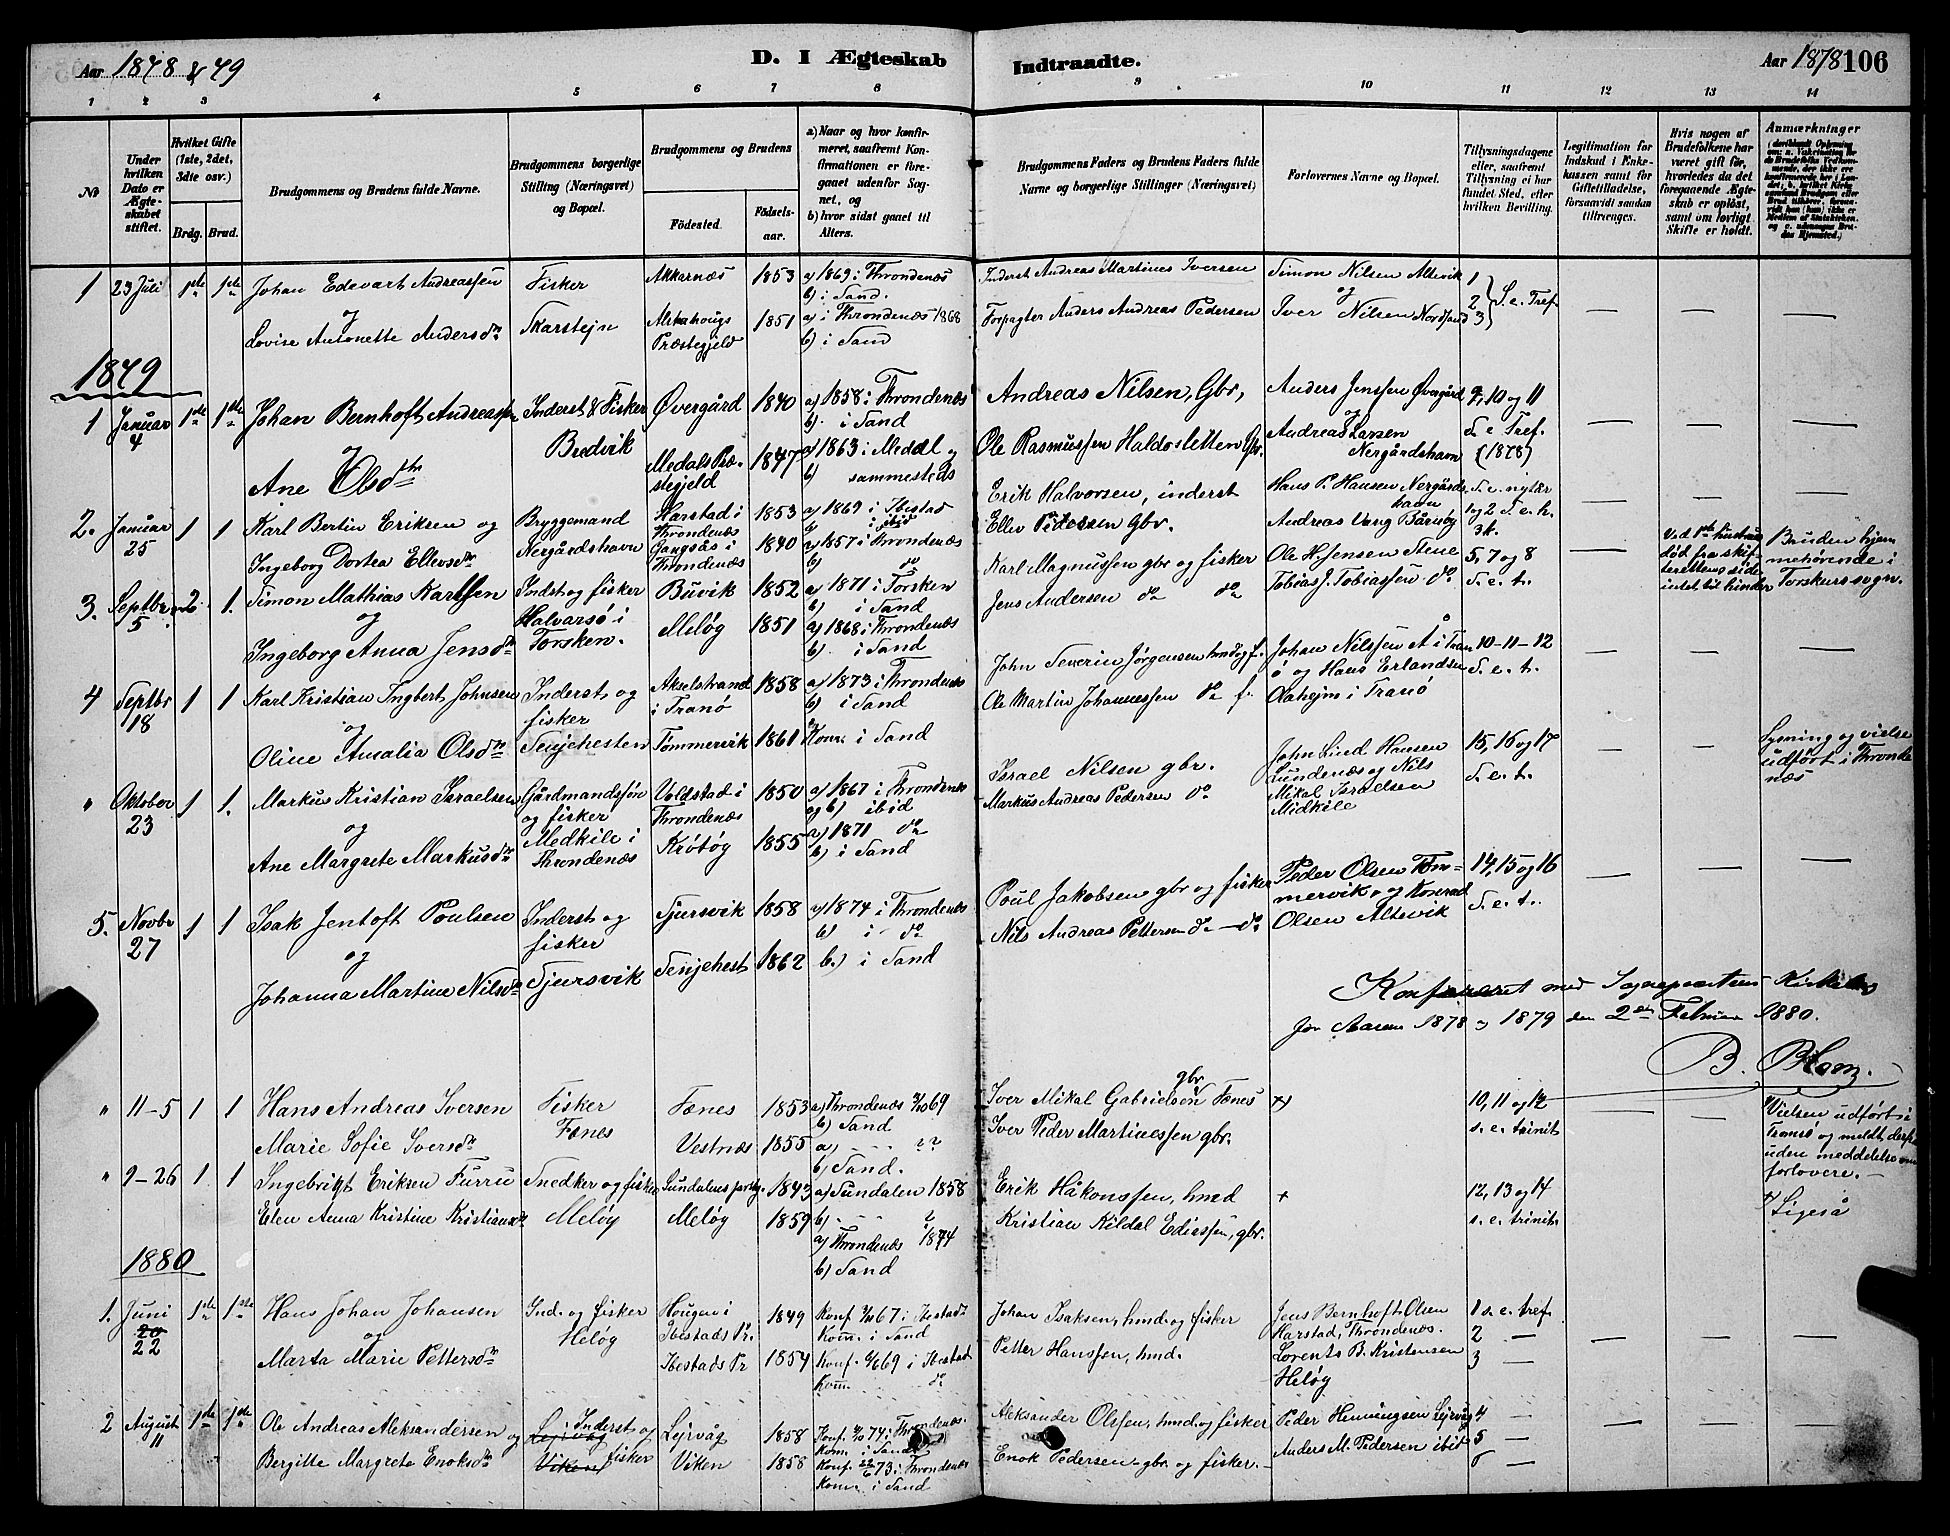 Aar 1878 & 79
D. I Ægteskab
Indtraadte.
Aar 1878 106
1 2 3 4 5 6 7 8 9 10 11 12 13 14
№
Under hvilken Dato er Ægteskabet stiftet.
Hvilket Gifte (1ste, 2det, 3die osv.)
Brdg. Brud.
Brudgommens og Brudens fulde Navne.
Brudgommens borgerlige Stilling (Næringsvei) og Bopæl.
Brudgommens og Brudens
Fødested.
Fødselsaar.
a) Naar og hvor konfirmeret, saafremt Konfirmationen er foregaaet udenfor Sognet, og
b) hvor sidst gaaet til Alters.
Brudgommens Faders og Brudens Faders fulde Navne og borgerlige Stillinger (Næringsvei)
Forlovernes Navne og Bopæl.
Tillysningsdagene eller, saafremt Tillysning ei har fundet Sted, efter hvilken Bevilling.
Legitimation for Indskud i Enkekassen samt for Giftetilladelse, forsaavidt saadan tiltrænges.
Hvis nogen af Brudefolkene har været gift før, hvorledes da det foregaaende Ægteskab er opløst, samt om lovligt Skifte er holdt.
Anmærkninger
1 23 Juli 1ste 1ste Johan Edevart Andreassen Fisker Akkarnæs 1853 a) 1869 i Throndenæs Inderst Andreas Martines Iversen Simon Nilsen Altevik 1
og b) i Sand. og 2 S. e. Tref.
Lovise Antonette Andersdtr Skarstejn Alstahougs Præstegjeld 1851 a) i Throndenæs 1868 Forpagter Anders Andreas Pedersen Iver Nilsen Nordsand 3
b) i Sand
1879
1 Januar 4 1ste 1ste Johan Bernhoft Andreassen Inderst & Fisker Øvergård 1840 a) 1858 i Throndenæs Andreas Nilsen, Gbr, Anders Jenssen Øvergård 9, 10 og 11
og Bredvik b) i Sand og S. e. Tref.
Ane Olsdtr Medals Præstegjeld 1847 a) 1863 i Medal og Ole Rasmussen Haldosletten Gbr. Andreas Larsen Nergårdshavn (1878)
b) sammesteds
2. Januar 25 1 1 Karl Bertin Eriksen og Bryggemand Harstad i Throndenæs 1853 a) 1869 i Ibestad Erik Halvorsen, inderst Hans P. Hansen Nergårdshavn S. e. nytår
Nergårdshavn b) ibid
Ingeborg Dortea Ellevsdtr Gangsås i Throndenæs 1840 a) 1857 i Throndenæs Ellev Pedersen gbr. Andreas Vang Bårnøg 1 og 2 S. e. h. 3k.
b) do
3. Septbr 5 2. 1. Simon Mathias Karlsen Indst og fisker Buvik 1852 a) 1871 i Torsken Karl Magnussen gbr og fisker Ole H. Jensen Stene 5, 7 og 8 Ved 1ste hustrues død fra skifterettens side intet til hinder Bruden hjemmehørende i Torskens sogn.
og Halvarsø i Torsken. b) i Sand
Ingeborg Anna Jensdtr Meløg 1851 a) 1868 i Throndenæs Jens Andersen do do Tobias J. Tobiassen do S. e. t.
b) i Sand
4 Septbr 18 1 1 Karl Kristian Ingbert Johnsen Inderst og fisker Akselstrand i Tranö 1858 a) 1873 i Throndenæs John Severin Jørgensen hmd og f. Johan Nilssen Å i Tranö og Hans Erlandsen 10-11-12
og b) i Sand S. e. t.
Oline Amalia Olsdtr Senjehesten Tömmervik 1861 Kom. i Sand Ole Martin Johannessen do f. Olahejm i Tranö
" Oktober 23 1 1. Markus Kristian Israelsen Gårdmandssøn og fisker Voldstad i Throndenæs 1850 a) 1867 i Throndenæs Israel Nilsen gbr. John Lind Hansen Lundenæs og Nils Mikal Israelsen Midkile 15, 16 og 17 Lysning og vielse udfört i Throndenæs
og b) ibid S. e. t.
Ane Margrete Markusdtr Medkile i Throndenæs Krøtøg 1855 a) 1871 do Markus Andreas Pedersen do
b) i Sand
5. Novbr 27 1 1 Isak Jentoft Poulsen Inderst og fisker Tjursvik 1858 a) 1874 i Throndenæs Poul Jakobsen gbr og fisker Peder Olsen Tömmervik og Konrad Olsen Altevik 14, 15 og 16
og b) i do S. e. t.
Johanna Martine Nilsdtr Tjursvik Senjehest 1862 b.) i Sand Nils Andreas Pettersen do do
Konfereret med Sognepræstens Kirkebog
for Aarene 1878 og 1879 den 2den Februar 1880.
B. Blom.
" 11-5 1 1 Hans Andreas Iversen Fisker Fænes 1853 a) Throndenæs 3/10 69 Iver Mikal Gabrielsen gbr Fænes +) 10, 11 og 12 Vielsen udført i Tromsö og meldt derfra uden meddelelse om forlovere.
Fænes b) Sand
Marie Sofie Iversdtr Vestnæs 1855 a) - - ?? Iver Peder Martinessen gbr. s. e. trinit
b) Sand.
" 9-26 1 1 Ingebrigt Eriksen Furru Snedker og fisker Sundalens prstgj. 1843 a) Sundalen 1858 Erik Håkonssen, hmd + 12, 13 og 14 +) Ligeså
b) - - ?
Elen Anna Kristine Kristiansdtr Meløg Meløg 1859 a) Throndenæs 1874 Kristian Kildal Ediassen, gbr. s. e. trinit.
b) Sand
1880
1. Juni 20 22 1ste 1ste Hans Johan Johansen Ind. og fisker Hougen i Ibestads Pr. 1849 Konf 3/10 67 i Ibestad Johan Isaksen, hmd og fisker Jens Bernhoft Olsen Harstad, Throndenæs. 1 s. e. tref.
og Heløg Kom. i Sand 2 —
Marta Marie Pettersdtr Ibestads Pr 1854 Konf. 69 i Ibestad Petter Hanssen, hmd. Lorents B. Kristensen Heløg 3 —
Kom. do
2 August 11 1ste 1ste Ole Andreas Aleksandersen og Lejrvåg Inderst og fisker Lejrvåg 1858 Konf. 74 i Throndenæs. Aleksander Olssen, hmd. og fisker Peder Henningsen Lejrvåg 4 —
Kom i Sand 5 —
Bergitte Margrete Enoksdtr Viken Viken 1858 Konf. 22/6 73 i Throndenæs Enok Pedersen gbr og fisker. Anders M. Pedersen ibid 6 —
Kom. i Sand